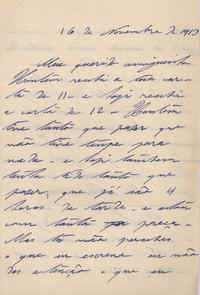 16 de Novembro de 1913
Meu querido amiguinho
Hontem recebi a tua car-
ta de 11 - e hoje recebi
a carta de 12 - Hontem
tive tanto que fazer que
não tive tempo para
nada - e hoje tambem
tenho tanto que
fazer, que já são 4
horas da tarde - e estou
com tanta pressa.
Mas tu não percebes
o que eu escrevo se não
das attenção o que eu